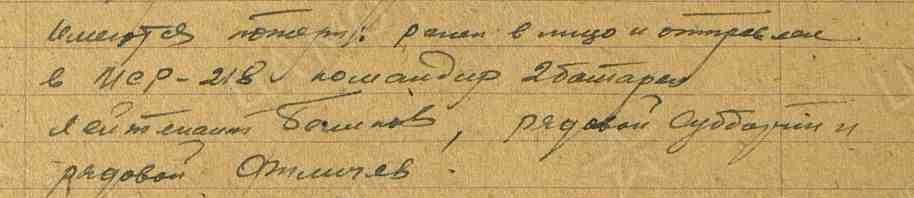 имеются потери: ранен в лицо и отправлен
в МСР-218 командир 2 батареи
лейтенант Баликов, рядовой Субботин и
рядовой Отмичев.